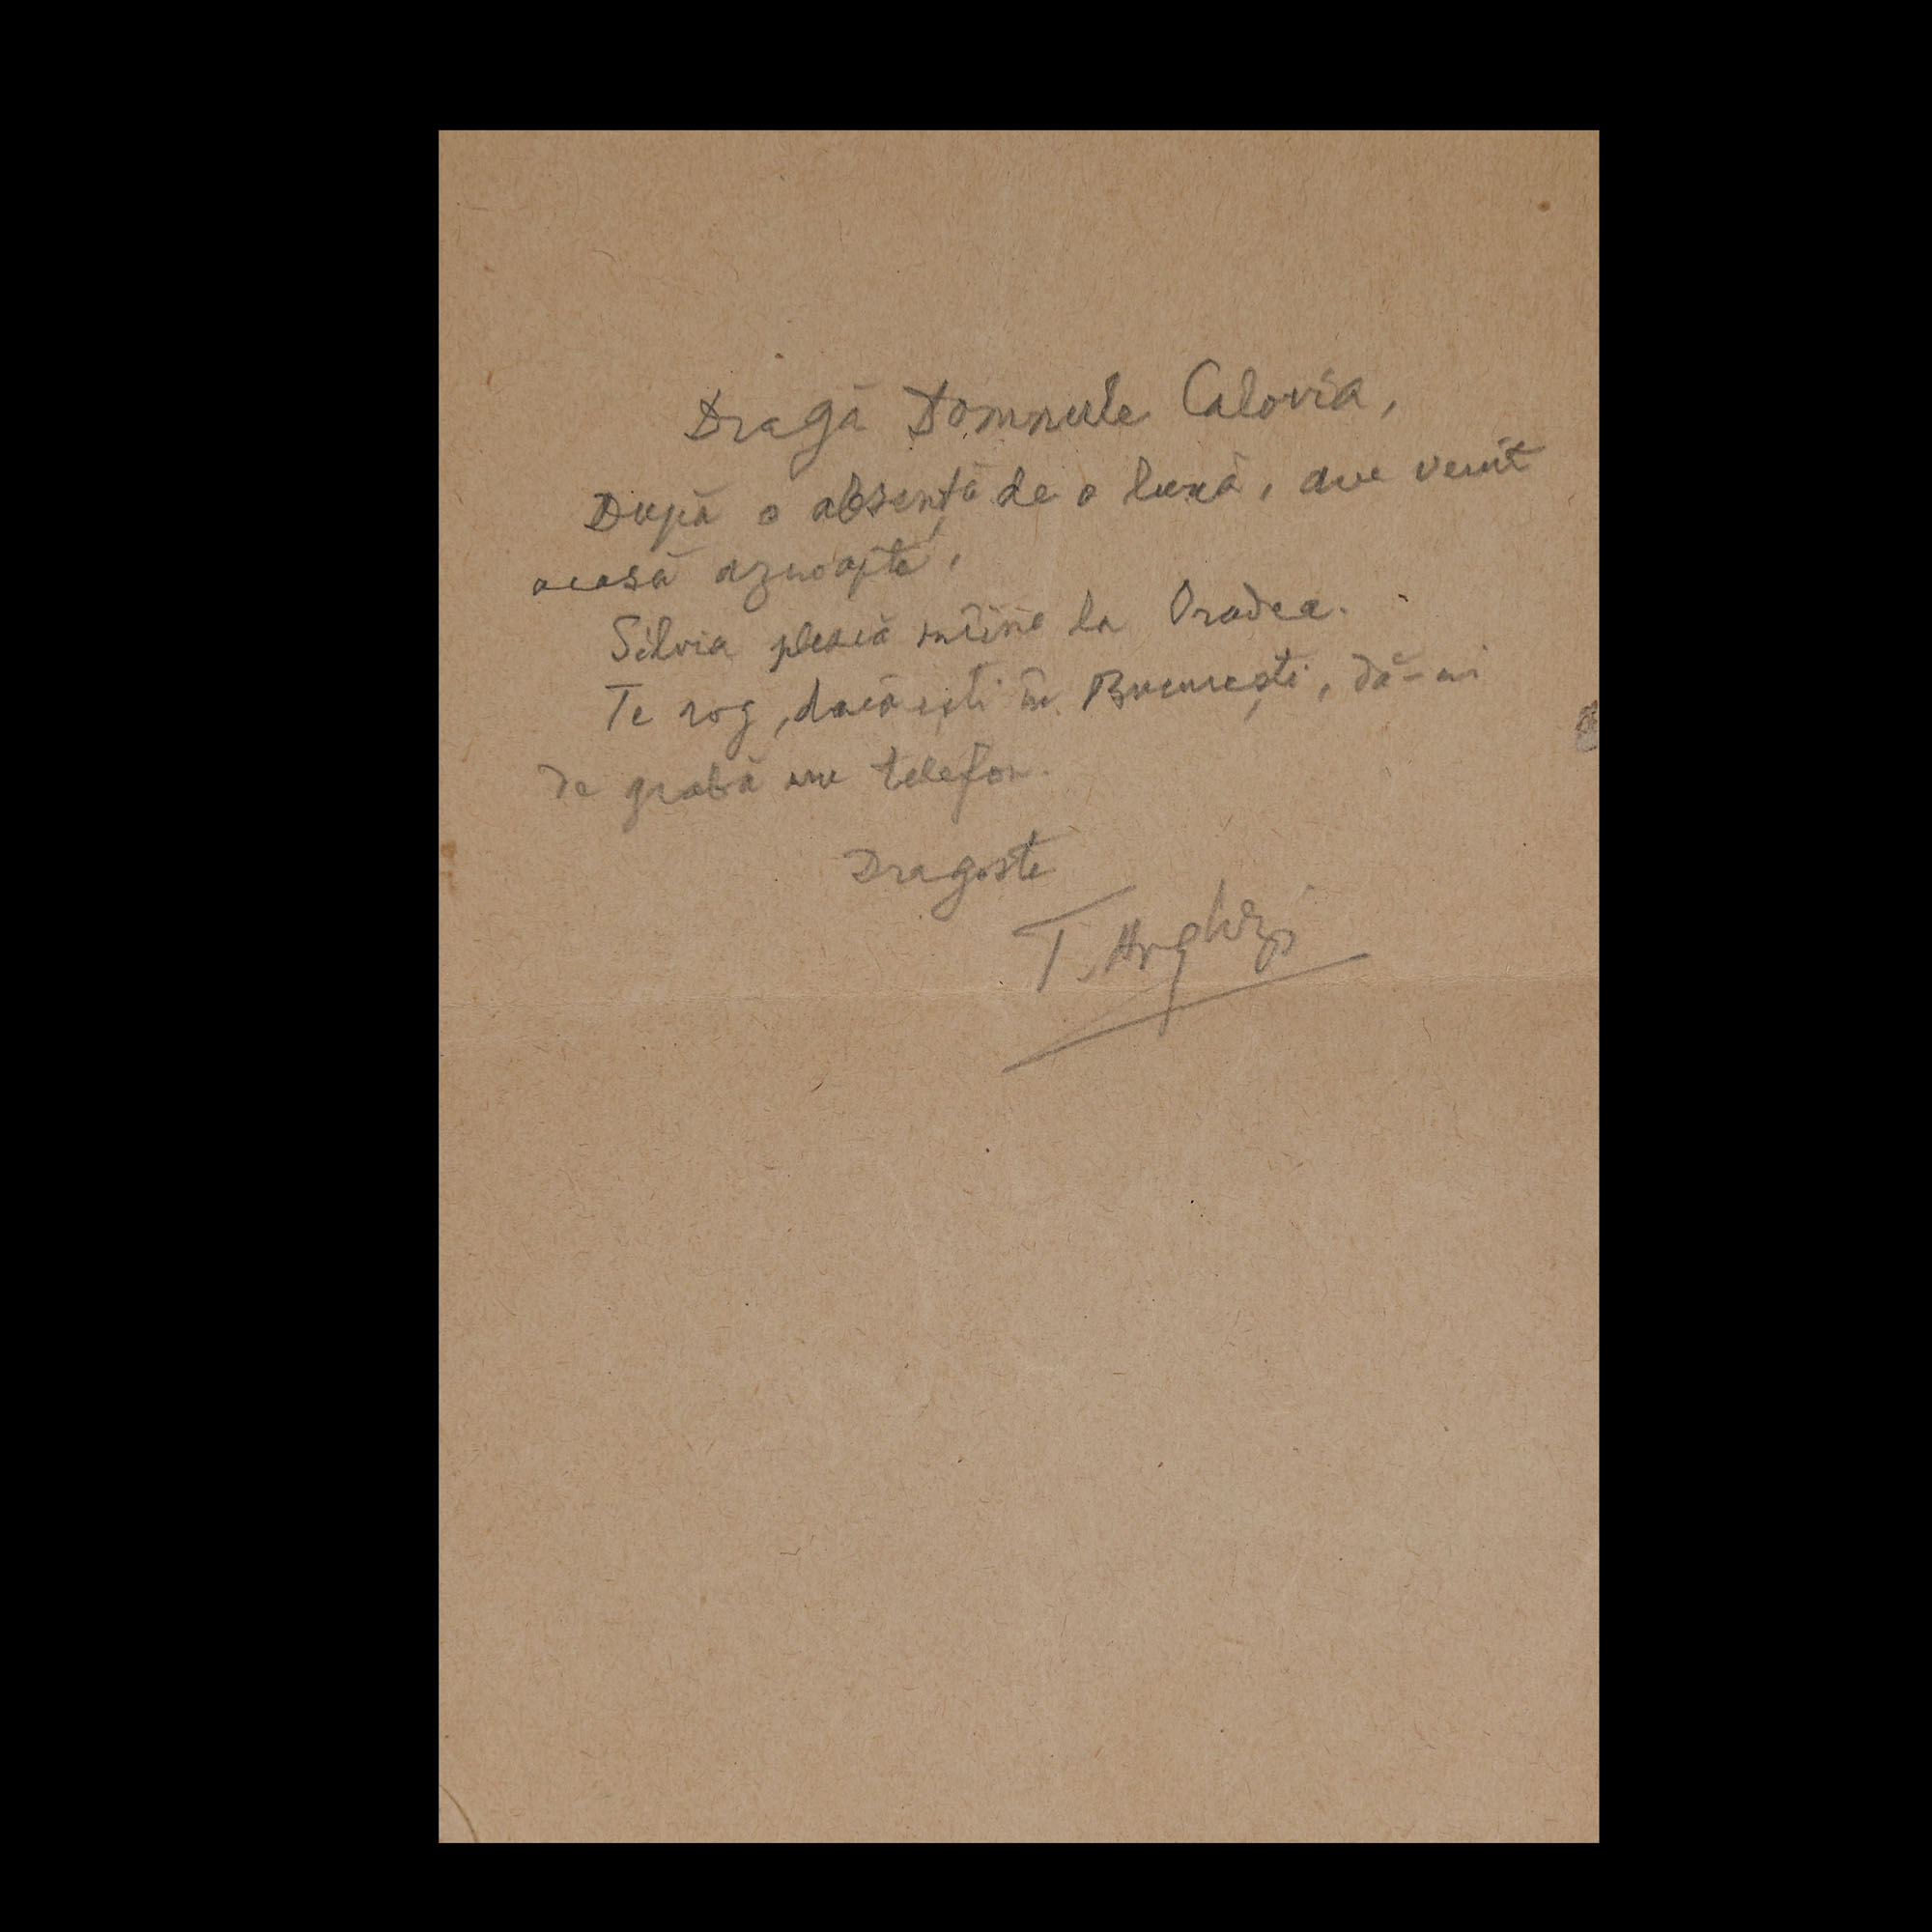 Dragă Domnule Calovia,
După o absență de o lună, am venit
acasă aznoapte.
Silvia pleacă mîine la Oradea.
Te rog, dacă ești în București, dă-mi
de grabă un telefon.
Dragoste
T. Arghezi